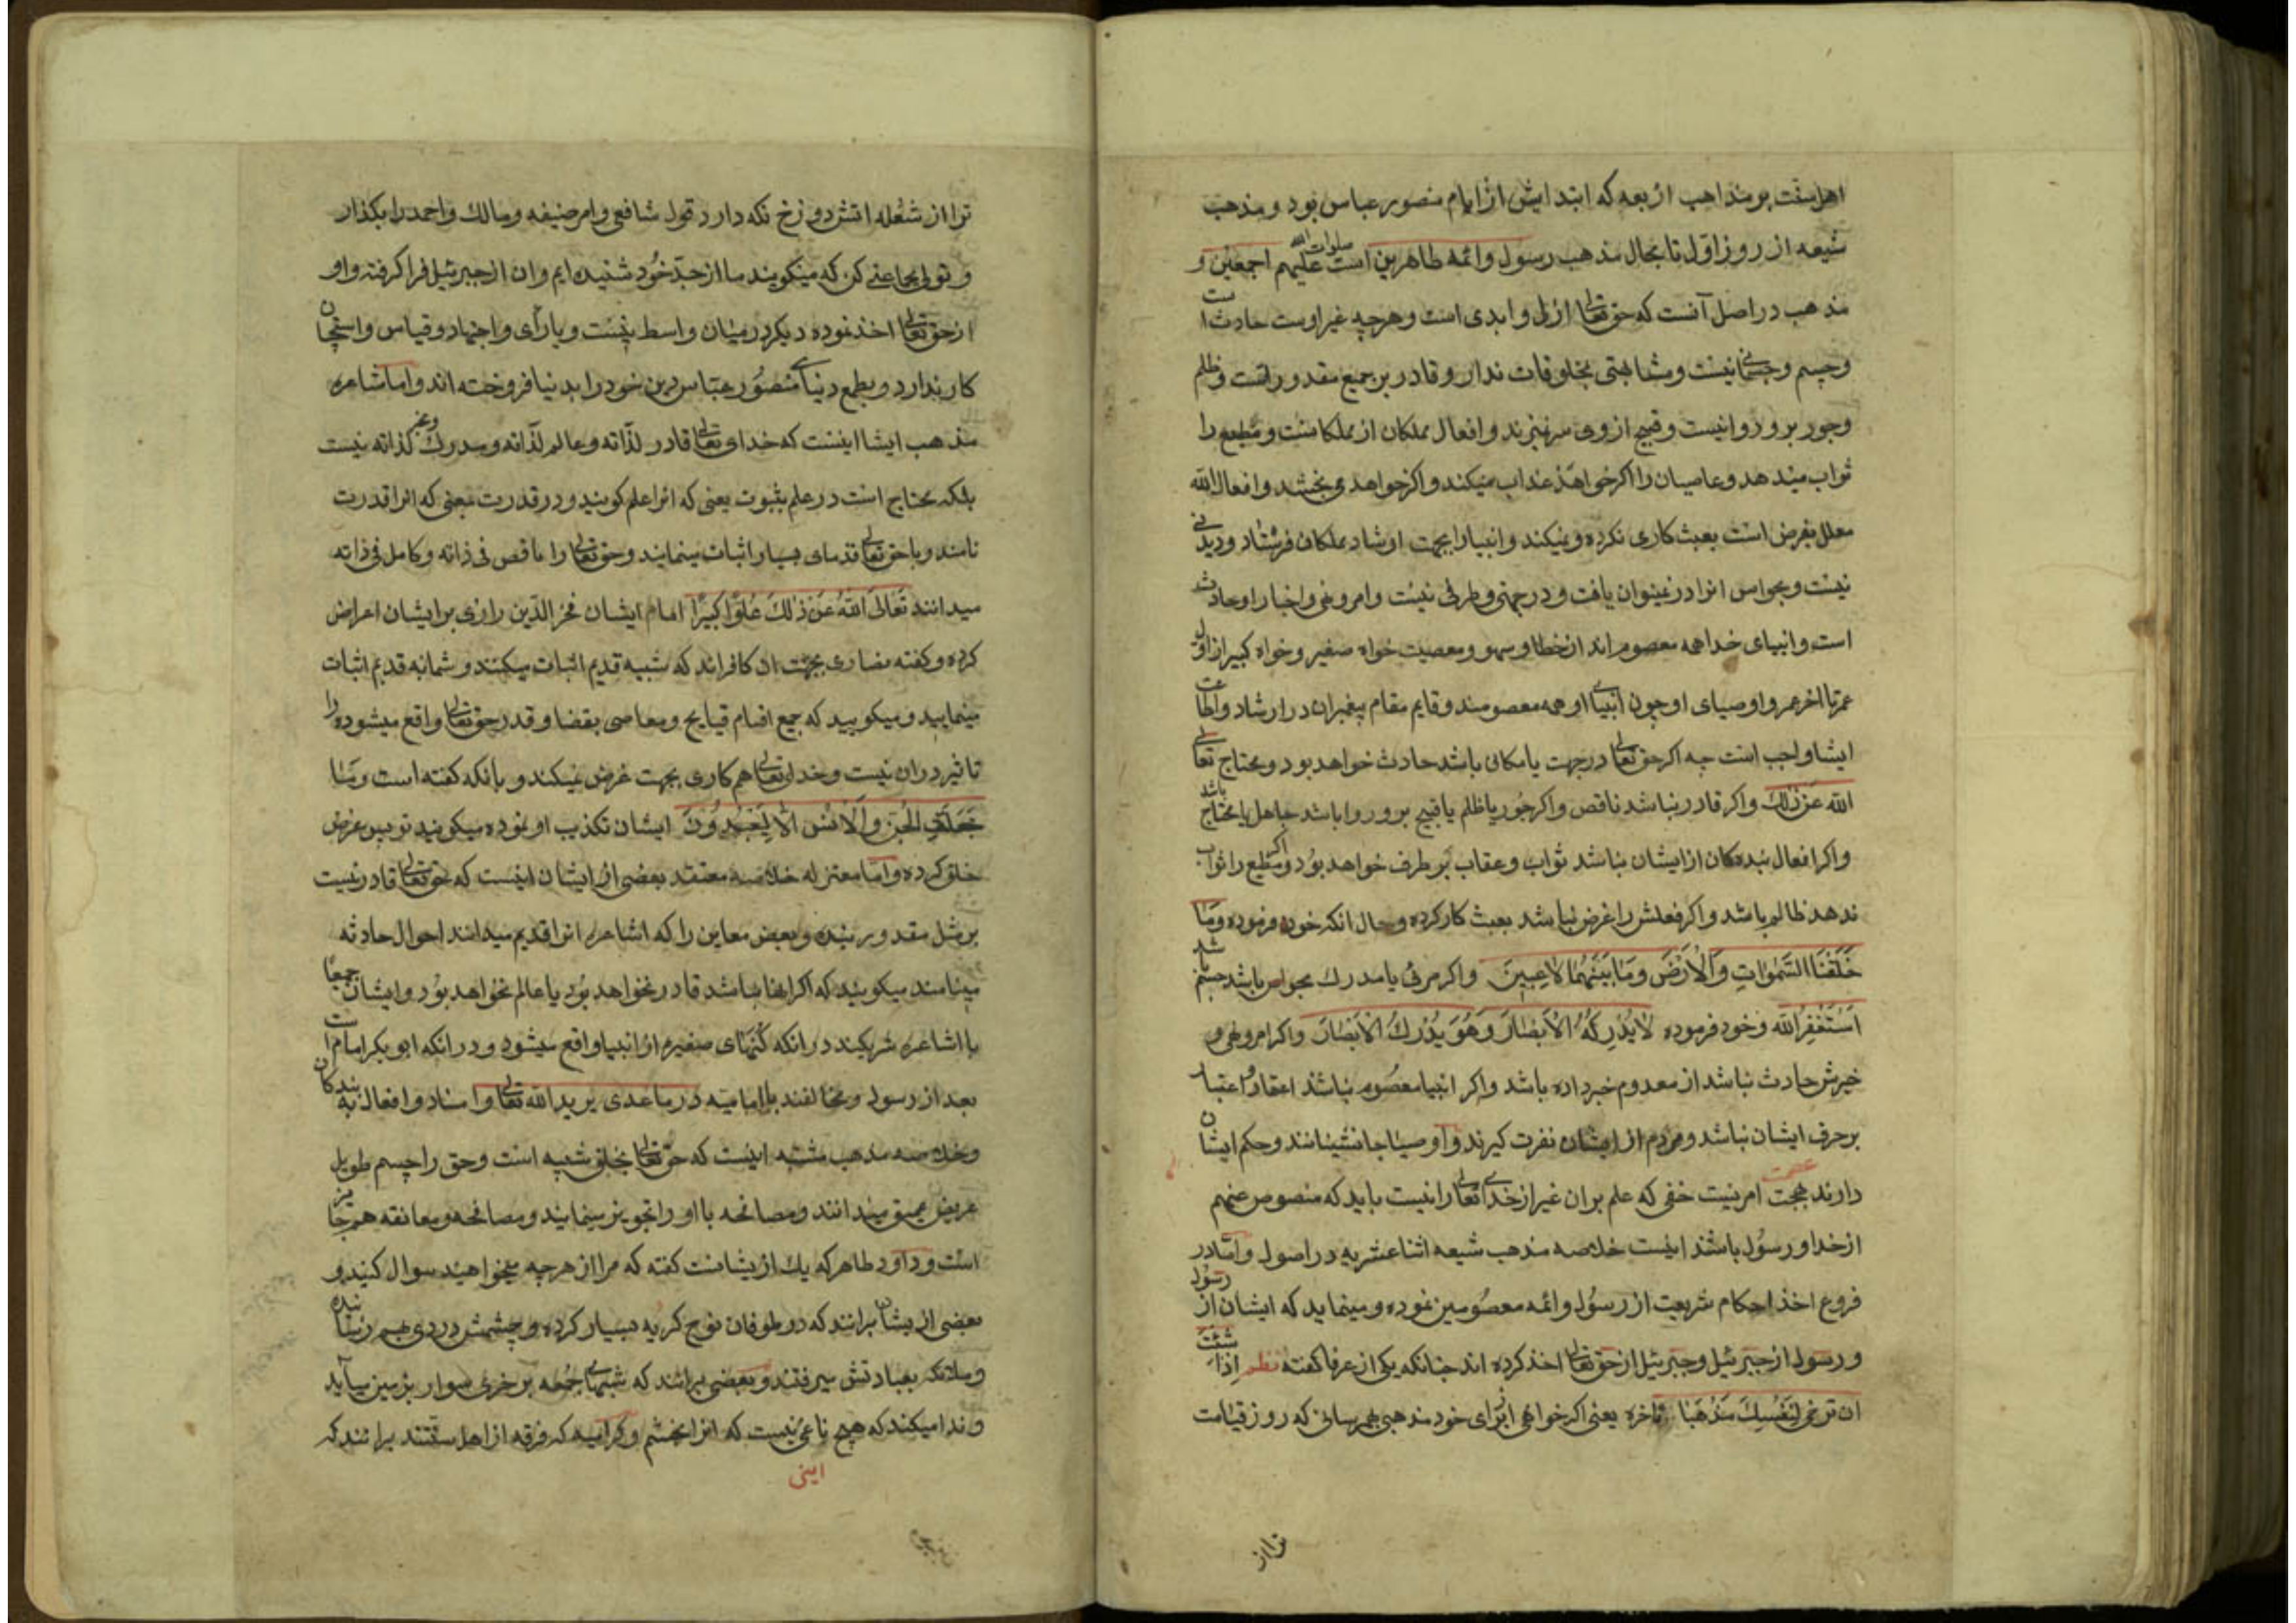 اهل سنت بر مذاهب اربعه که ابتدایش از ایام منصور عباس بود و مذهب
شیعه از روز اول تا بحال مذهب رسول وائمه طاهرین است صلوات الله علیهم اجمعین و
مذهب در اصل آنست که حق تعالی ازلی وابدی است وهرچه غیر اوست حادث است
وجسم وجسمانی نیست ومشابهتی بمخلوقات ندارد وقادر بر جمیع مقدوراتست وظلم
وجور برو روا نیست وقبیح از وی سر نمیزند وافعال مملکان از مملکانست ومطیع را
ثواب میدهد وعاصیان را اگر خواهد عذاب میکند واگر خواهد می بخشد وافعال الله
معلل بغرض است بعبث کاری نکرده ونمیکند وانبیا را بجهت ارشاد مملکان فرستاد ودیدنی
نیست وبحواس انرا در نمیتوان یافت ودر جهتی وطرفی نیست وامر ونهی واخبار او حادث
است وانبیای خدا همه معصوم اند از خطا وسهو ومعصیت خواه صغیر وخواه کبیر از اول
عمر تا اخر عمر واوصیای او چون انبیای او همه معصومند وقایم مقام پیغمبران در ارشاد واطاعت
ایشا واجب است چه اکر حق تعالی در جهت یا مکانی باشد حادث خواهد بود ومحتاج تعالی
الله عن ذلک واکر قادر نباشد ناقص واکر جور یا ظلم یا قبیح برو روا باشد جاهل یا محتاج باشد
واکر افعال بنده کان از ایشان نباشد ثواب وعقاب بر طرف خواهد بود واکر مطیع را ثواب
ندهد ظالم باشد واکر فعلش را غرض نباشد بعبث کار کرده وحال انکه خود فرموده وَمَا
خَلَقْنَا السَّمٰوَاتِ وَالْاَرْضَ وَمَا بَیْنَهُمَا لَاعِبِینَ واکر مرئی یا مدرک بحواس باشد جسم باشد
اَسْتَغْفِرُ الله وخود فرموده لَا یُدْرِکُهُ الْاَبْصَارَ وَهُوَ یُدْرِكُ الْاَبْصَارَ واکر امر ونهی و
خبرش حادث نباشد از معدوم خبر داده باشد واکر انبیا معصوم نباشند اعتماد واعتبار
بر حرف ایشان نباشد ومردم از ایشان نفرت کیرند واوصیا جانشینانند وحکم ایشان
دارند بجهت عصمت امریست خفی که علم بران غیر از خدای تعالی را نیست باید که منصوص عنهم
از خدا ورسول باشند اینست خلاصه مذهب شیعه اثنا عشریه در اصول واما در
فروع اخذ احکام شریعت از رسول وائمه معصومین نموده ومینماید که ایشان از رسول
ورسول از جبرئیل وجبرئیل از حق تعالی اخذ کرده اند چنانکه یکی از عرفا کفته نظم اِذَا شِئْتَ
ان ترضی لِنَفْسِكَ مَذْهَبًا تا اخره یعنی اکر خواهی از برای خود مذهبی بهم رسانی که روز قیامت
تراز
ترا از شعله اتش دوزخ نکه دارد قول شافعی وابو حنیفه ومالک واحمد را بکذار
وتولی بجماعتی کن که میکویند ما از جد خود شنیده ایم وان از جبرئیل فرا کرفته واو
از حق تعالی اخذ نموده دیکر در میان واسط نیست وبا رأی واجتهاد وقیاس واستحسان
کار ندارد وبطمع دنیای منصور عباس دین خود را بدنیا فروخته اند واما اشاعره
مذهب ایشا اینست که خدای تعالی قادر لذاته وعالم لذاته ومدرک وغیر کذاته نیست
بلکه محتاج است در علم بثبوت یعنی که انرا علم کویند ودر قدرت بمعنی که انرا قدرت
نامند وبا حق تعالی قدمای بسیار اثبات مینمایند وحق تعالی را ناقص فی ذاته وکامل فی ذاته
میدانند تَعَالَی اللّٰهُ عَنْ ذٰلِكَ عُلُوًّا کَبِیرًا امام ایشان فخر الدین رازی بر ایشان اعراض
کرده وکفته نصاری بجهت ان کافراند که سه قدیم اثبات میکنند وشما نه قدیم اثبات
مینمایید ومیکویید که جمیع اقسام قبایح ومعاصی بقضا وقدر حق تعالی واقع میشود ... را
تاثیر دران نیست وخدای تعالی هم کاری بجهت غرض نمیکند و بانکه کفته است وَمَا
خَلَقْتُ الْجِنَّ وَالْاِنْسَ اِلَّا لِیَعْبُدُونَ ایشان تکذیب او نموده میکویند تو بی غرض
خلق کرده واما معتزله خلاصه معتقد بعضی از ایشان اینست که حق تعالی قادر نیست
بر مثل مقدور بنده وبعض معاین را که اشاعره انرا قدیم میدانند احوال حادثه
مینامند میکویند که اکر اینها نباشد قادر نخواهد بود یا عالم نخواهد بود وایشان جمیعا
با اشاعره شریکند در انکه کنهای صغیره از انبیا واقع میشود ودر انکه ابو بکر امام است
بعد از رسول ومخالفند با امامیه در ماعدی یرید الله تعالی واسناد وافعال به بندکان
وخلاصه مذهب مشبه اینست که حق تعالی بخلق شبیه است وحق را جسم طویل
عریض عمیق میدانند ومصافحه با او را تجویز مینمایند ومصافحه ومعانقه هم جایز
است وداود طاهر که یک از یشانست کفته که مرا از هرچه میخواهید سوال کنید و
بعضی از یشان برانند که در طوفان نوح کریه بسیار کرده وچشمش دردی بهم رسانیده
وملائکه بعیادتش میرفتند وبعضی برانند که شبهای جمعه بر خری سوار بزمین میآید
وندا میکند که هیچ تائبی نیست که انرا ببخشم وکرامیه که فرقه از اهل سنتند برانند که
اینی